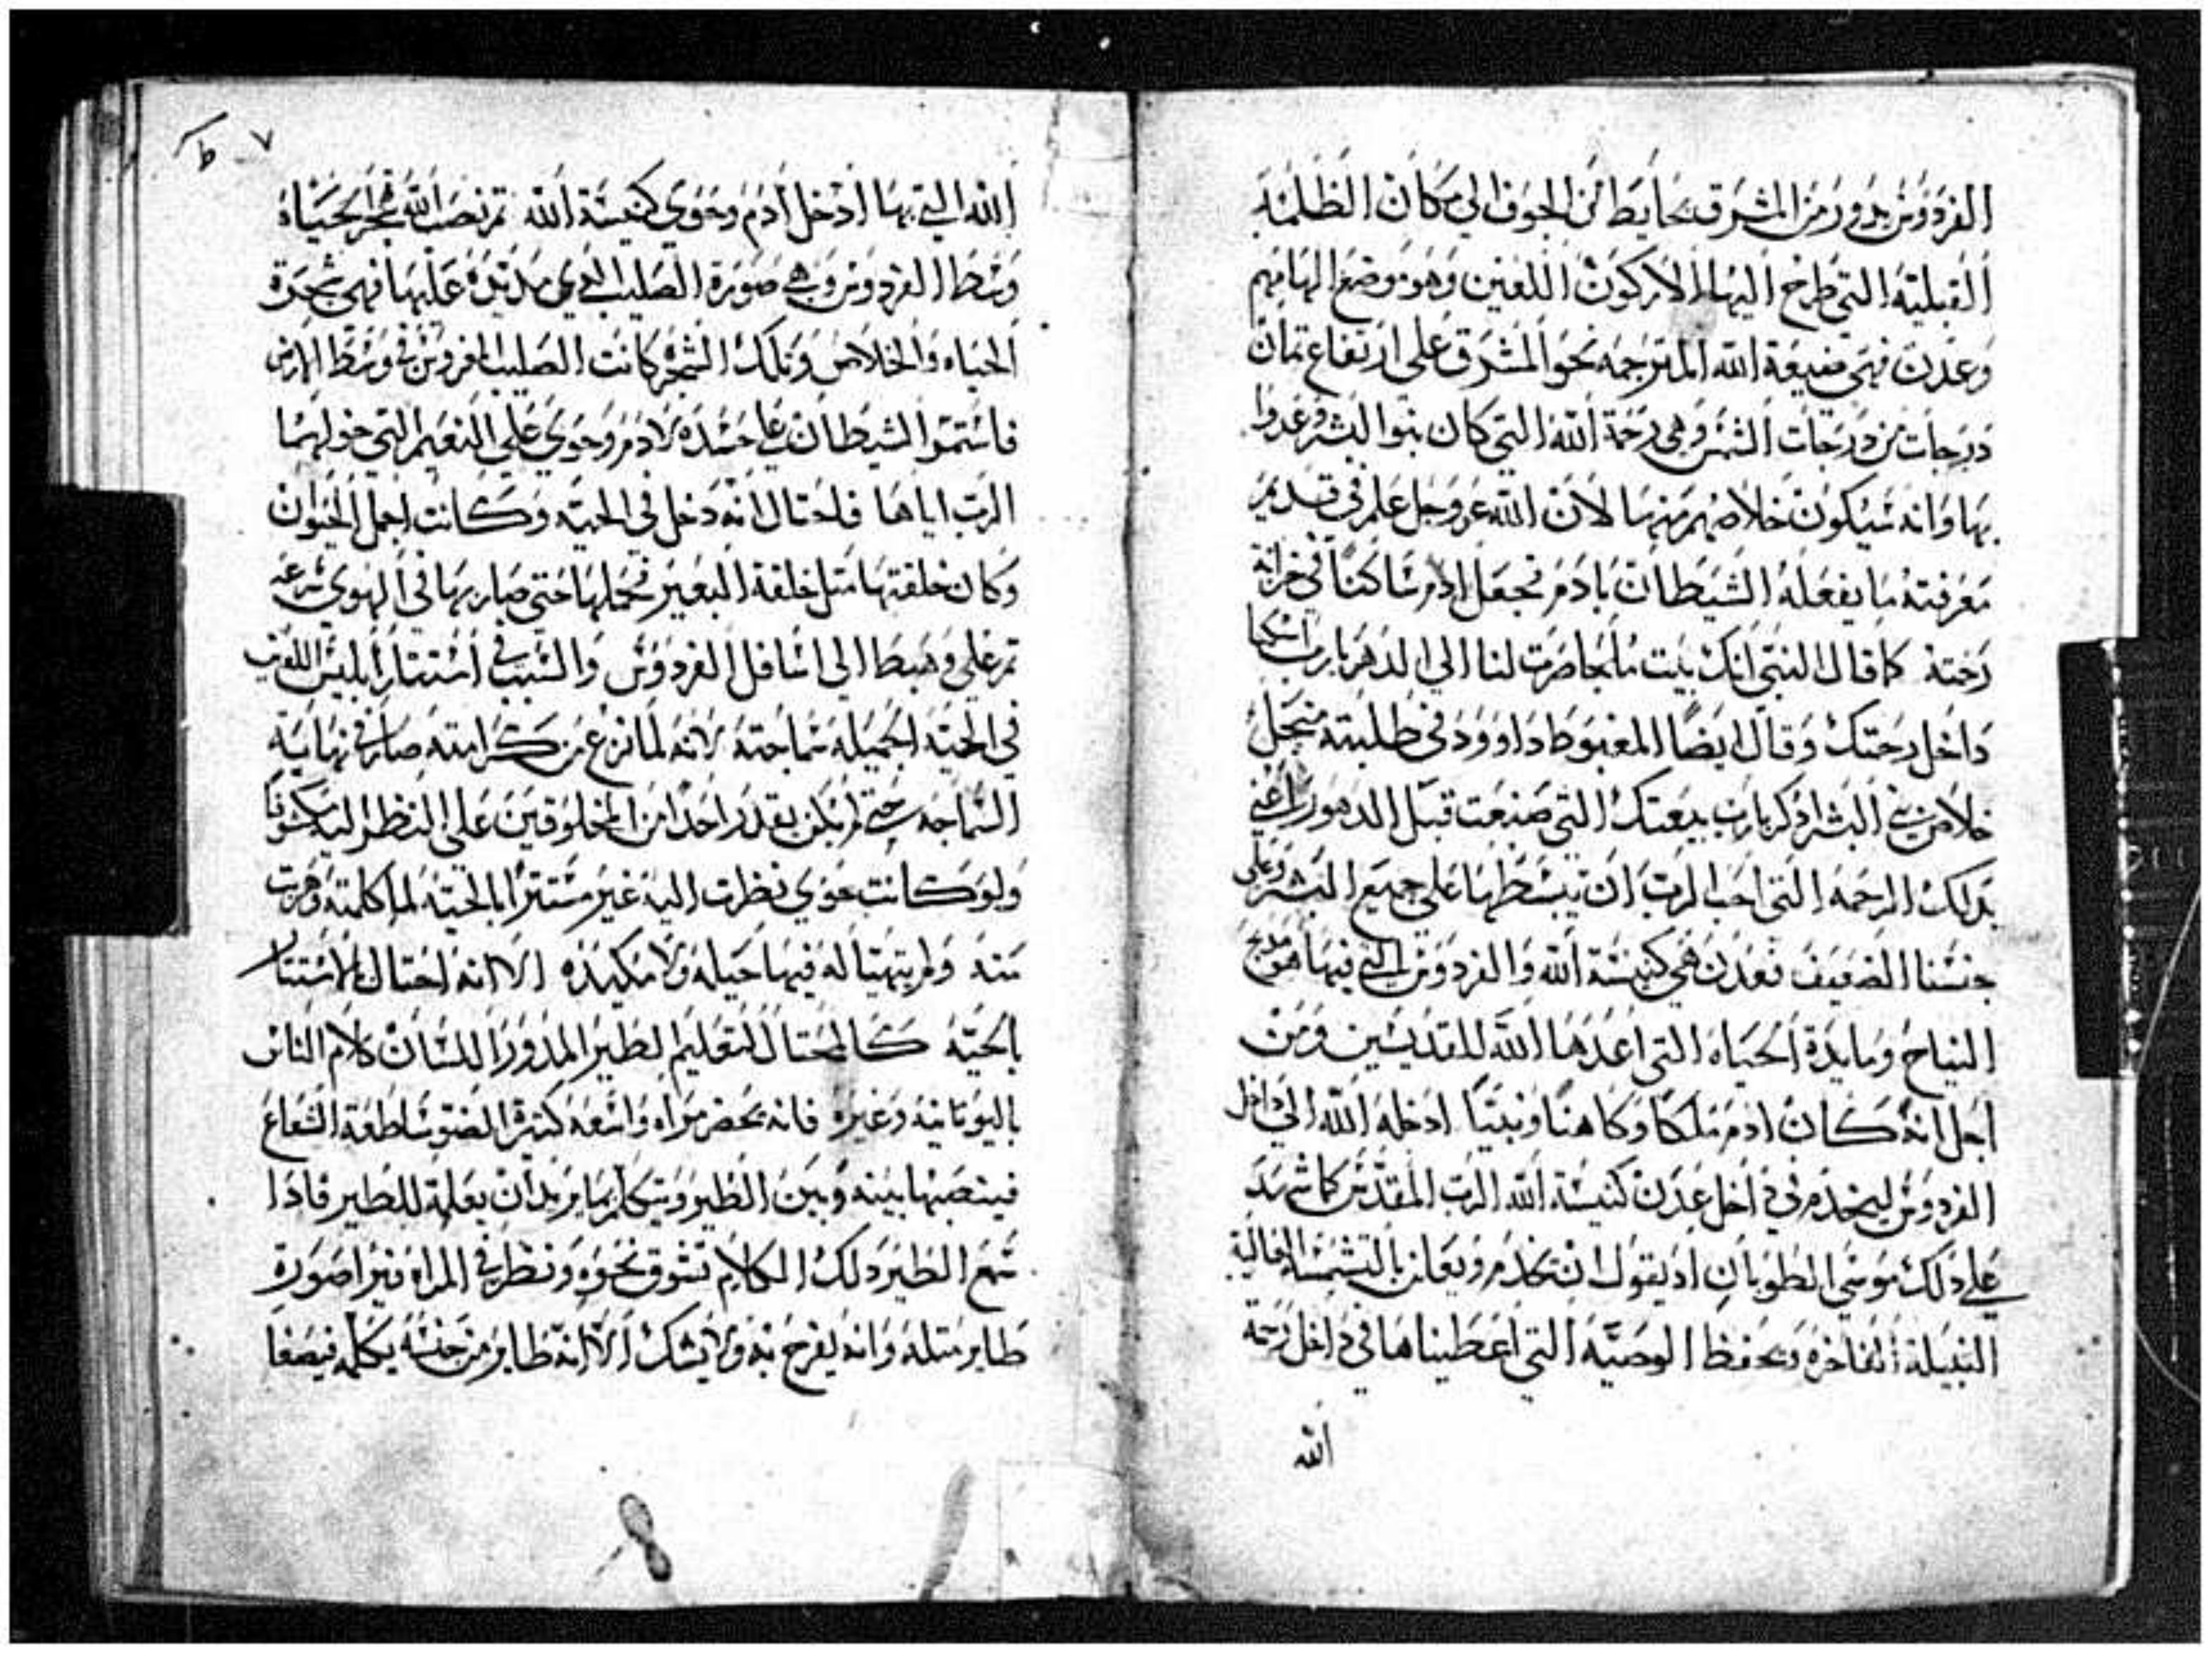 الفردوس يدور من المشرق بحايط من الجوف الي مكان الظلمه
القبليه التي طرح اليها الاركون اللعين وهو موضع الهامهم
وعدن فهي ضيعة الله المترجمه نحو المشرق علي ارتفاع تمان
درجات من درجات الشمس وهي رحمة الله التي كان بنوا البشر وعدوا
بها وانه سيكون خلاصهم منها لان الله عز وجل علم في قديم
معرفته ما يفعله الشيطان بادم فجعل ادم ساكنا في خزانة
رحمته كما قال النبي انك بيت ملجا صرت لنا الي الدهر يارب اسكنا
داخل رحمتك وقال ايضا المغبوط داوود في طلبته من اجل
خلاص بني البشر اذكر يارب بيعتك التي صنعت قبل الدهور اعني
بدلك الرحمه التي احب الرب ان يبسطها علي جميع البشر وعلي
جنسنا الضعيف فعدن هي كنيسة الله والفردوس التي فيها هو مديح
النياح ومايدة الحياه التي اعدها الله للقديسين ومن
اجل انه كان ادم ملكا وكاهنا ونبيا ادخله الله الي داخل
الفردوس ليخدم في داخل عدن كنيسة الله الرب المقدس كما شهد
علي دلك موسي الطوبان اد يقول ان يخدم ويعلن بالتشمسه العالية
النبيلة الفاخره ويحفظ الوصيه التي اعطيناها في داخل رحمة
الله
٧ ط
الله التي بها ادخل ادم وحوي كنيسة الله ثم نصب الله شجرة الحياه
وسط الفردوس وهي صورة الصليب الدي مد يده عليها فهي شجرة
الحياه والخلاص وتلك الشجره كانت الصليب المغروس في وسط الارض
فاستمر الشيطان علي حسده لادم وحوي علي النعيم التي خولهما
الرب اياها فاحتال انه دخل في الحيه وكانت اجمل الحيوان
وكان خلقتها مثل خلقة البعير فحملها حتي صار بها في الهوي سرعه
ثم علي وهبط الي اسافل الفردوس والسبب في استتار ابليس اللعين
في الحيه الجميله سماجته لانه لما نزع من كرامته صار في نهاية
السماجه حتي لم يكن يقدر احدا من المخلوقين علي النظر اليه مكشوفا
ولو كانت حوي نظرت اليه غير مستترا بالحيه لما كلمته وهربت
منه ولم يتهيا له فيها حيله ولا مكيده الا انه احتال بالاستتار
بالحيه كالمحتال لتعليم الطير المدور اللسان كلام الناس
باليونانيه وغيره فانه يحضر مراه واسعه كثيرة الضو ساطعة الشعاع
فينصبها بينه وبين الطير ويتكلم بما يريد ان يعلمه للطير فادا
سمع الطير دلك الكلام تشوق نحوه ونظر في المراه فيرا صورة
طاير مثله وانه ليفرح به ولا يشك الا انه طاير من جنسه يكلمه فيصغا